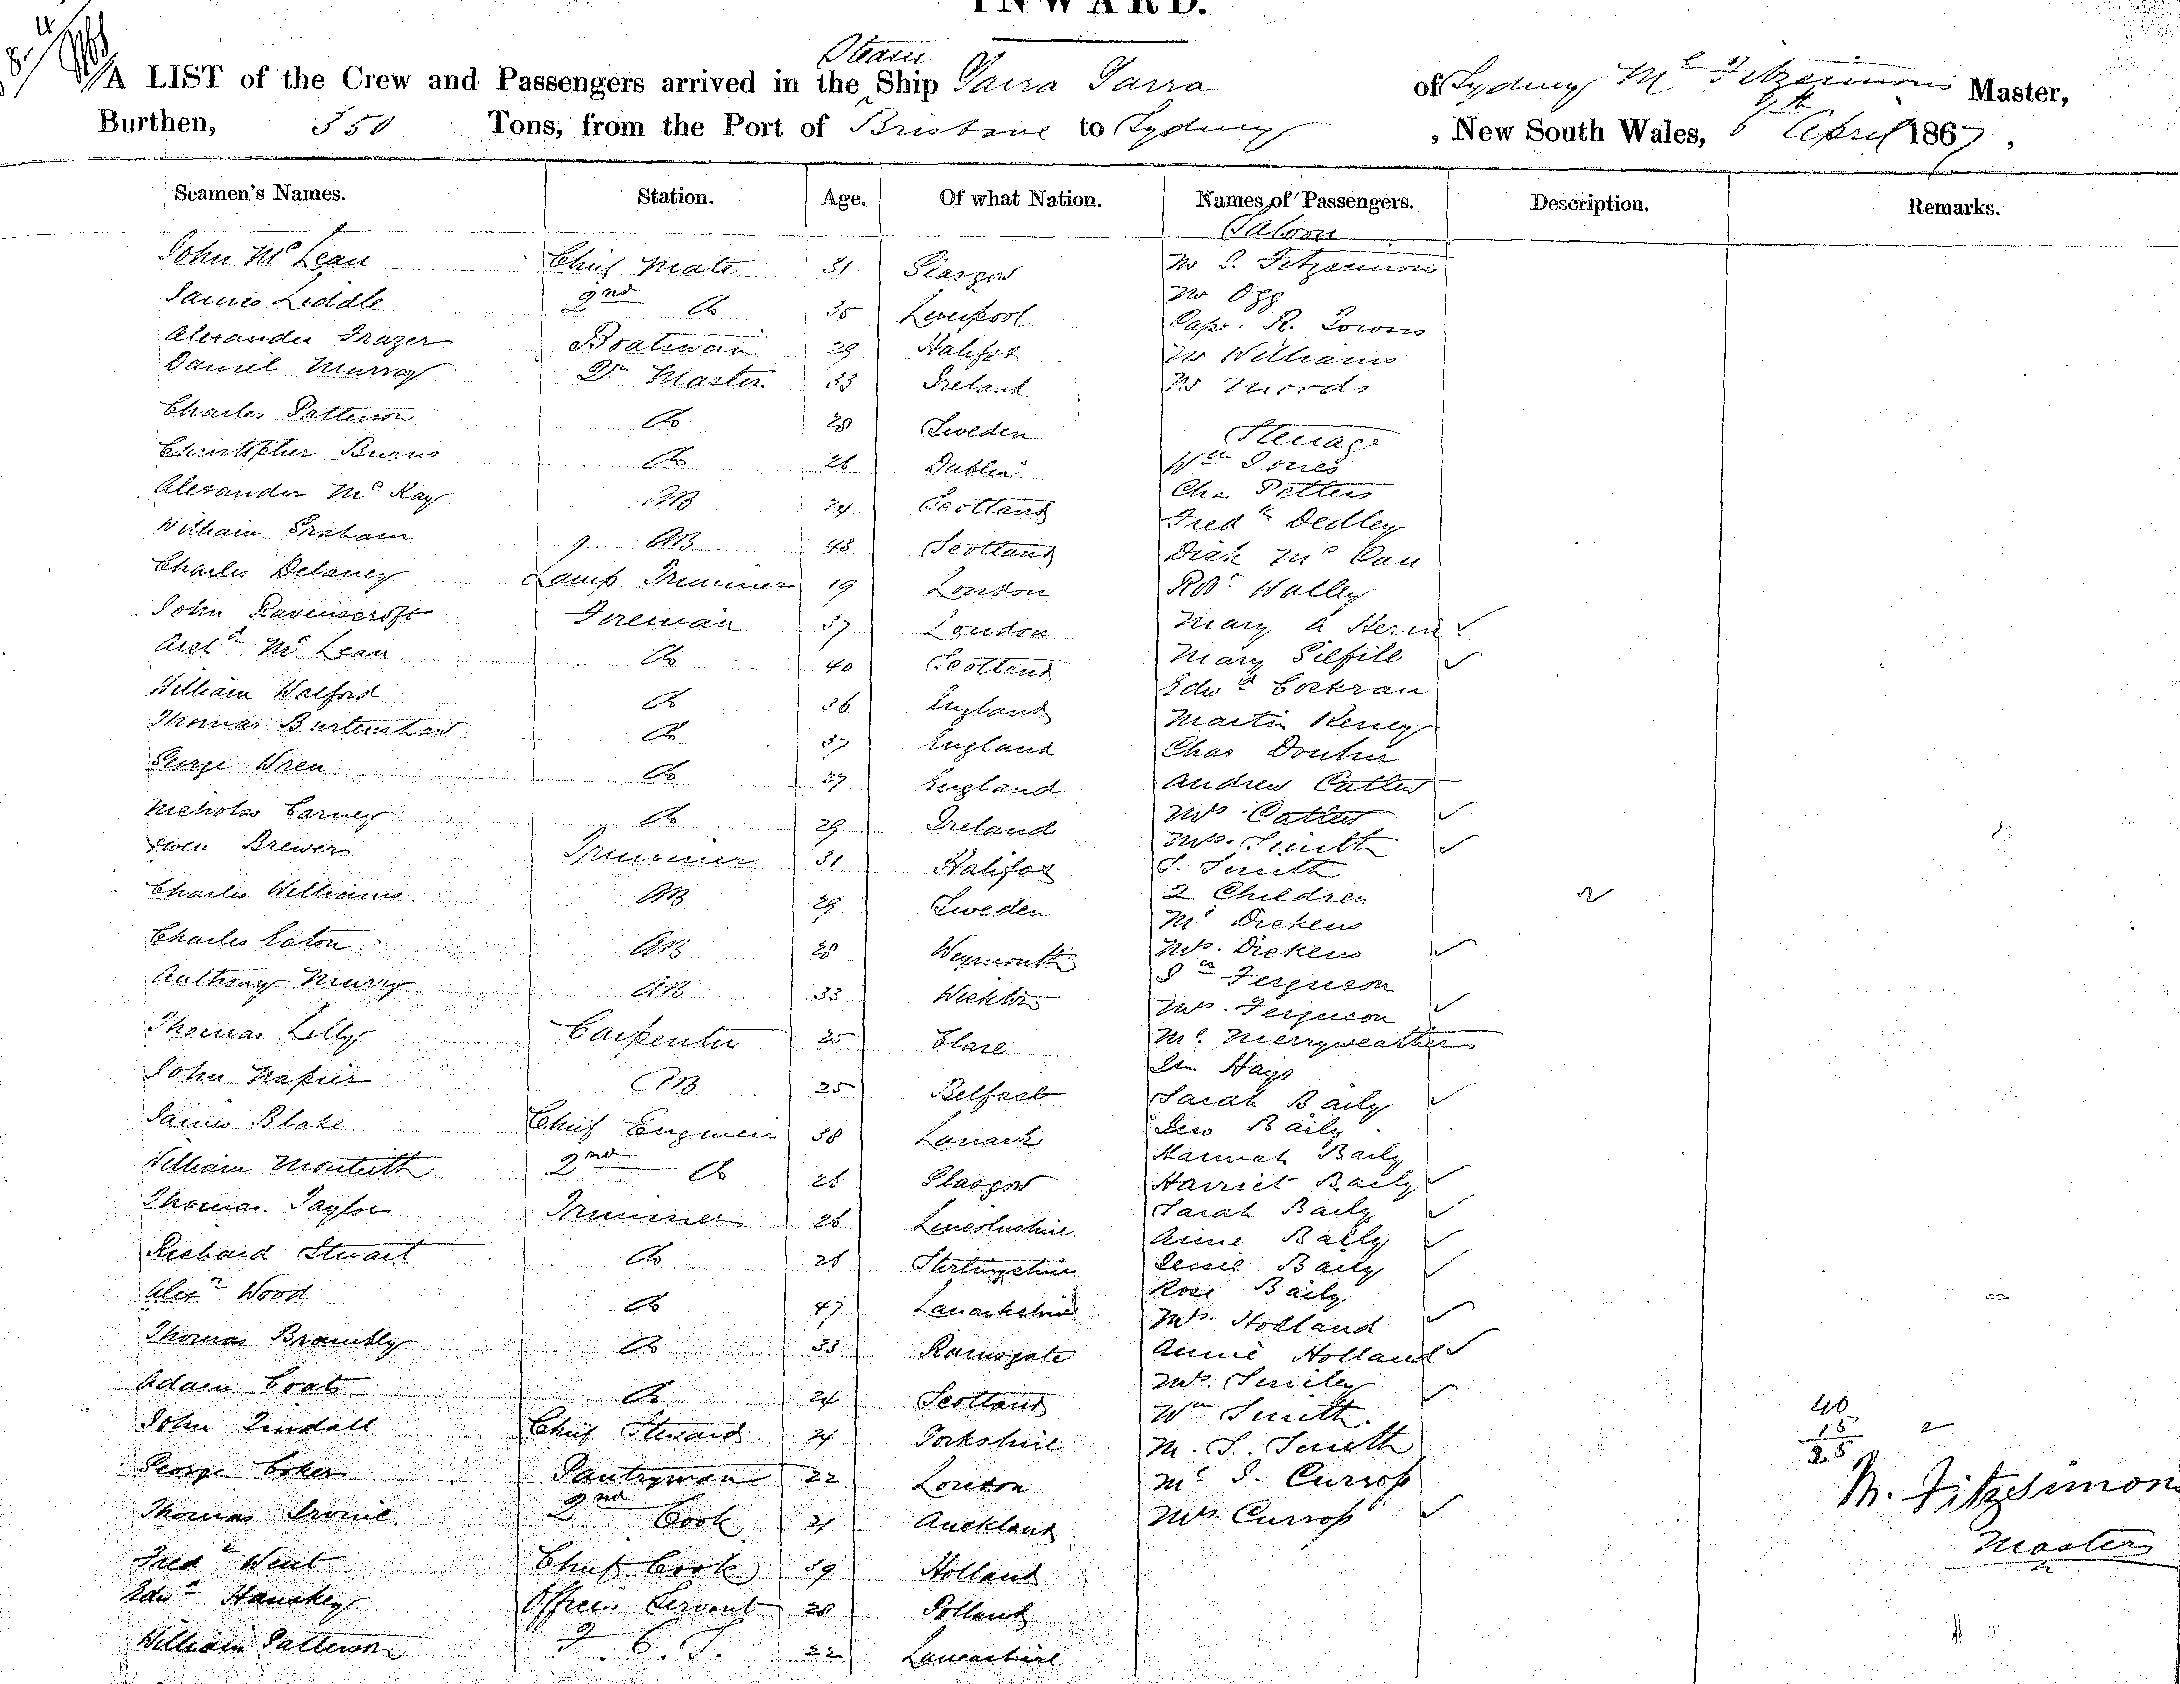 INWARD.
Steam
A LIST of the Crew and Passengers arrived in the Ship Yarra Yarra of Sydney M. Fitzsimons Master,
Burthen, 350 Tons, from the Port of Brisbane to Sydney, New South Wales, April 1867,
Seamen's Names. Station. Age. Of what Nation. Names of Passengers. Description. Remarks.
Saloon
John McLean Chief Mate 31 Glasgow Mr S. Fitzsimons
James Liddle 2nd Do 35 Liverpool Mr Ogg
Capt. R. Towns
Alexander Frazer Boatswain 29 Halifax Mr Williams
Daniel Murray Qr Master 33 Ireland
Charles Patterson Do 28 Sweden Steerage
Christopher Burns Do 26 Dublin Wm Jones
Alexander McKay AB 24 Scotland Chas Petters
Fredk Dedley
William Graham AB 48 Scotland Dick McCan
Charles Delaney Lamp Trimmer 19 London Robt Walley
John Ravenscroft Fireman 37 London Mary A
Archd McLean Do 40 Scotland Mary Gilfill
William Walford Do 36 England Edwd Cockran
Thomas Do 37 England Martin Keney
Chas
George Wren Do 27 England Andrew Catler
Nicholas Carney Do 29 Ireland Mrs Catler
Brewer Trimmer 31 Halifax Mrs. Smith
J. Smith
Charles Williams AB 29 Sweden 2 Children 2
Mr Dickens
Charles Eaton AB 28 Weymouth Mrs. Dickens
Ferguson
Anthony Murry AB 33 Wicklow Mrs. Ferguson
Thomas Lilly Carpenter 25 Clare Mr Merryweather
Hays
John Napier AB 25 Belfast Sarah Baily
James Blake Chief Engineer 38 Lanark Geo Baily
Hannah Baily
William Monteith 2nd Do 26 Glasgow Harriet Baily
Thomas Taylor Trimmer 26 Lincolnshire Sarah Baily
Anne Baily
Richard Stuart Do 26 Stirlingshire Jessie Baily
Rose Baily
Alexr Wood Do 47 Lanarkshire Mrs. Holland
Thomas Brambly Do 33 Ramsgate Annie Holland
Mrs. Smiley
Adam Coats Do 24 Scotland Wm Smith
John Tindall Chief Steward 24 Yorkshire M. S. Smith
George Coker Pantryman 22 London Mr J. Curross
Thomas Irvine 2nd Cook 21 Auckland Mrs Curross
Fredk Went Chief Cook 39 Holland
Edwd Officers Servant 28 Polland
William Patterson 22 Lancashire
40
15 2
25
M. Fitzsimons
Master